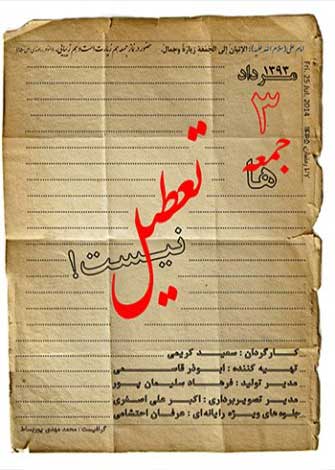 امام علی (سلام الله علیه): الاتیان إلی الجُمعَة زیارةٌ وجمالٌ. حضور در نماز جمعه هم زیارت است و هم زیبایی.
Fri, 25 Jul. 2014
۱۳۹۳
مرداد
۳
جمعه
ها
تعطیل
نیست!
کارگردان : سعید کریمی
تهیه کننده : ابوذر قاسمی
مدیر تولید : فرهاد سلیمان پور
مدیر تصویربرداری : اکبر علی اصغری
جلوه‌های ویژه رایانه ای : عرفان احتشامی
گرافیست : محمد مهدی پوربساط